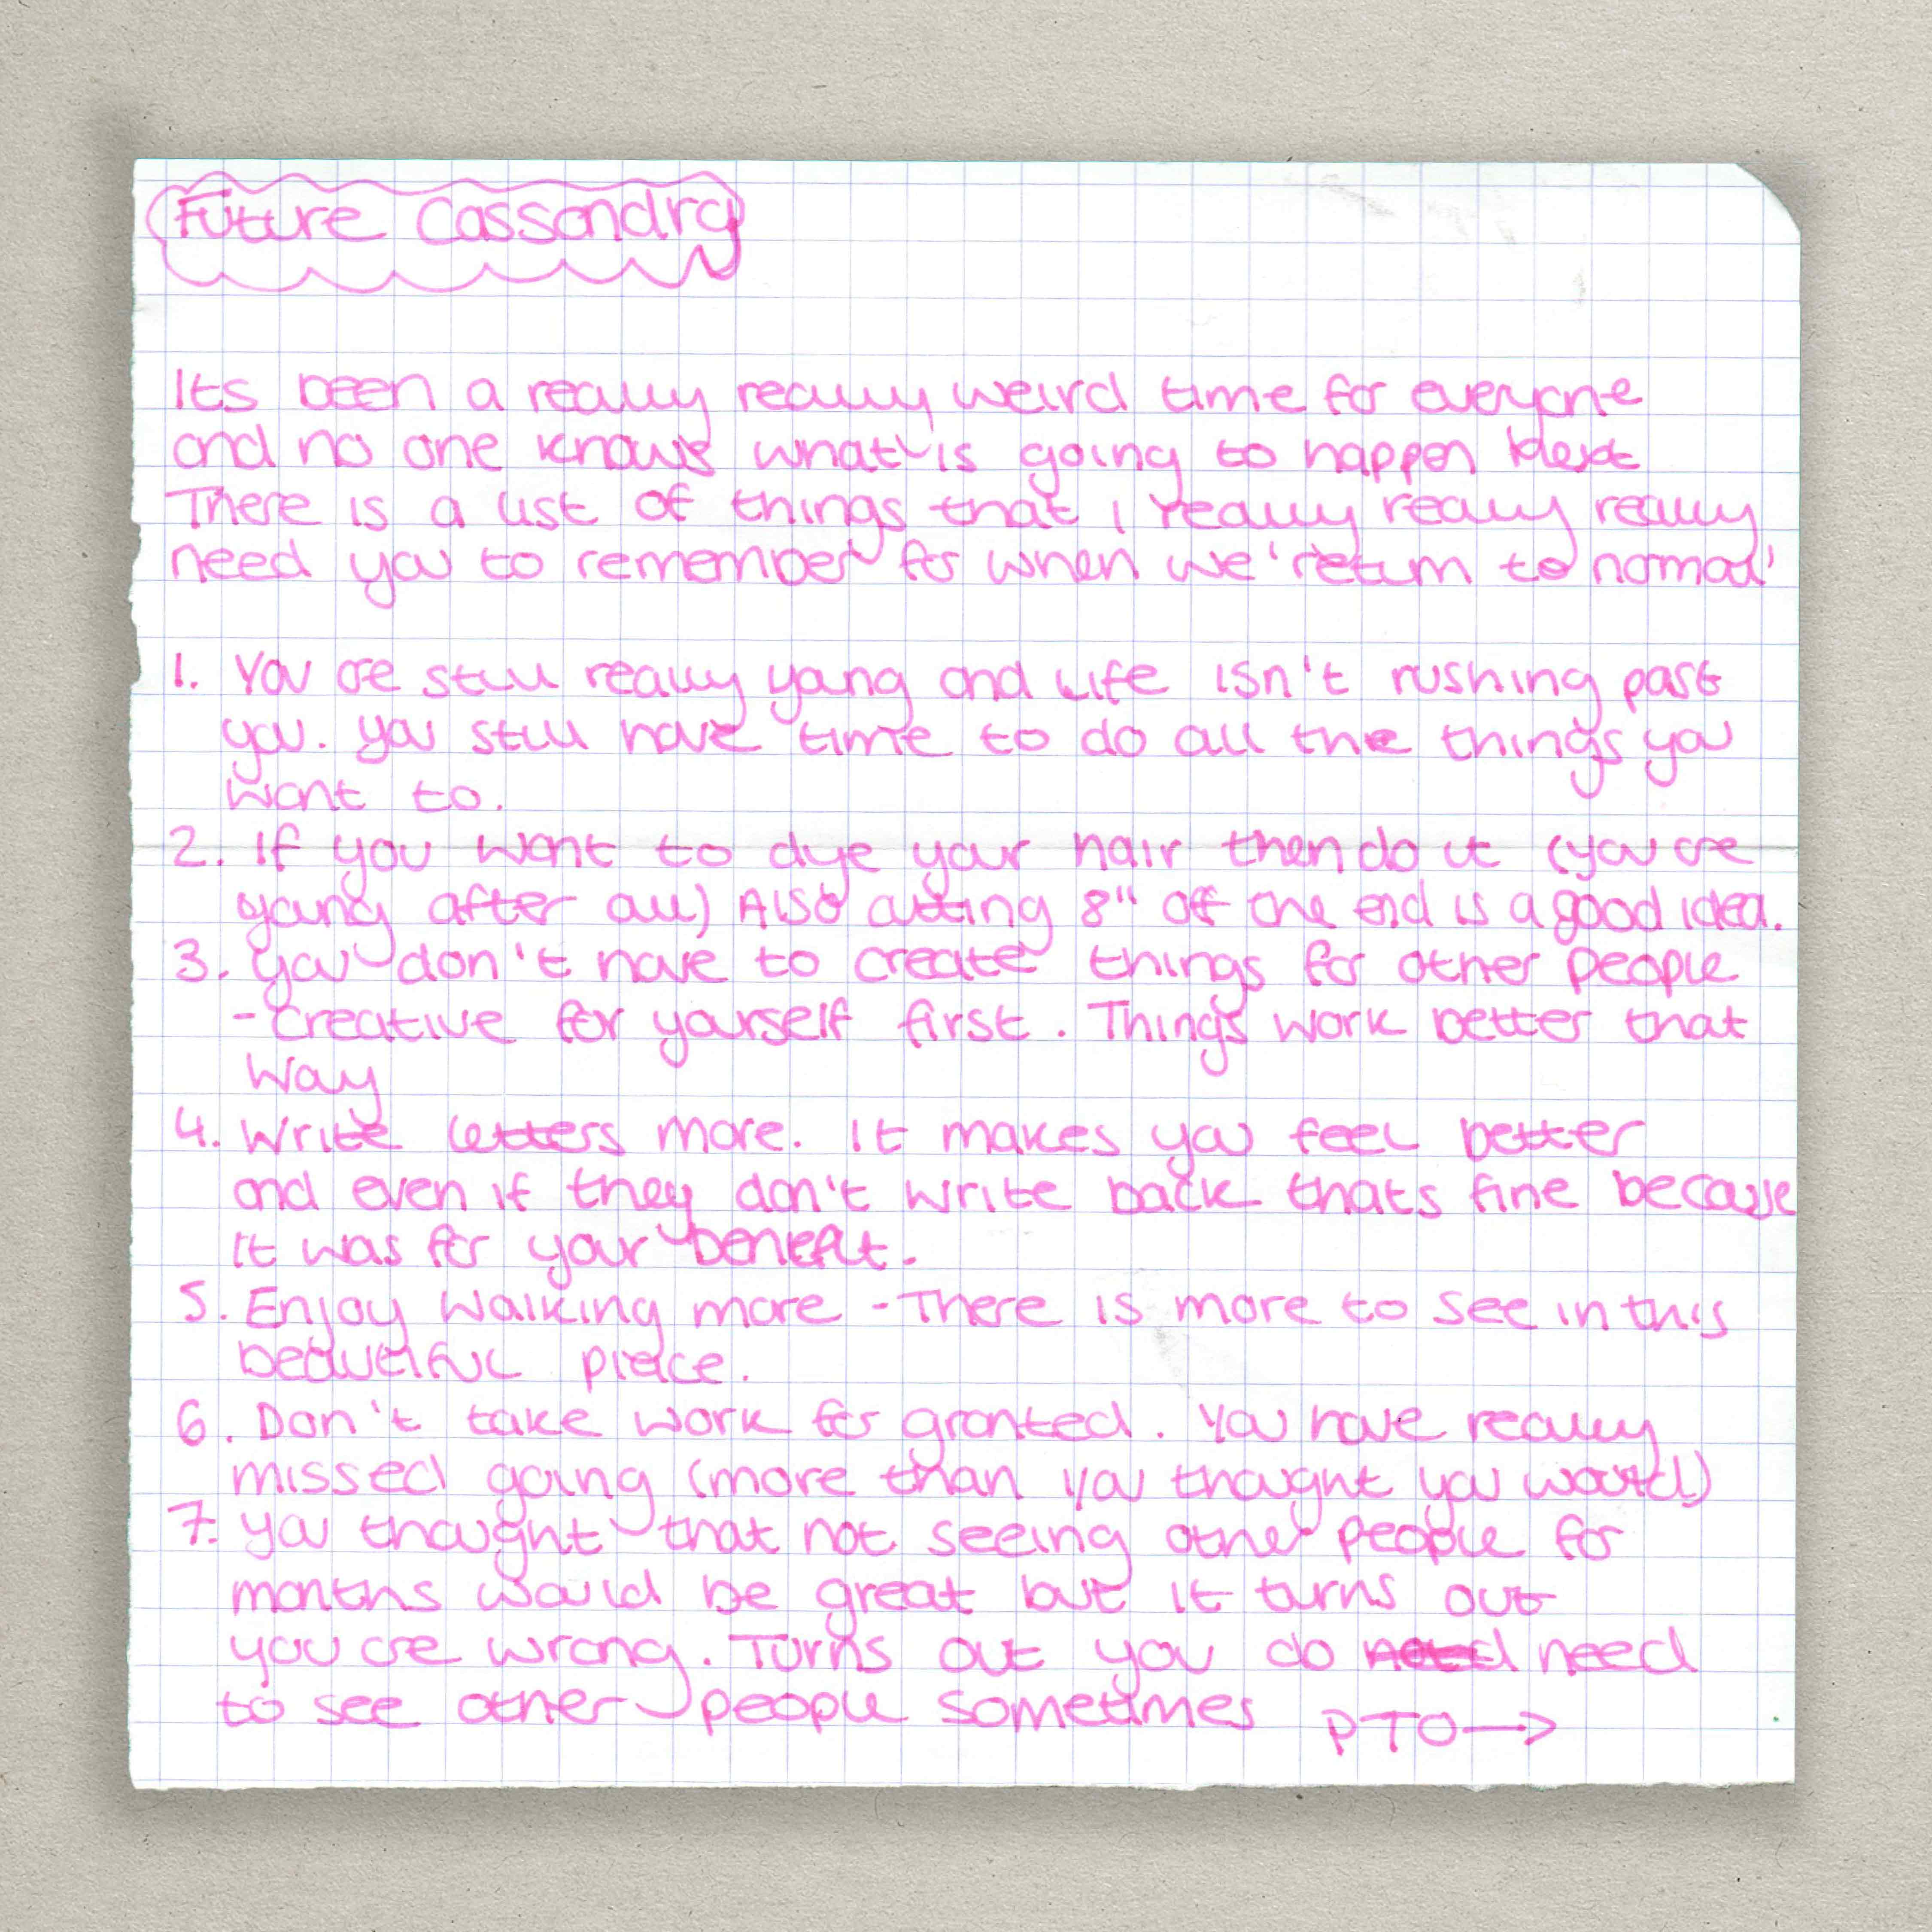 Future Cassandra
Its been a really really weird time for everyone
and no one knows what is going to happen Next
There is a list of things that I really really really
need you to remember for when we 'return to normal'
1. You are still really young and life isn't rushing past
you. You still have time to do all the things you
want to.
2. If you want to dye your hair then do it (you are
young after all) Also cutting 8" off the end is a good idea.
3. You don't have to create things for other people
- creative for yourself first. Things work better that
way
4. Write letters more. It makes you feel better
and even if they don't write back thats fine because
it was for your benefit.
5. Enjoy walking more - There is more to see in this
beautiful place.
6. Don't take work for granted. You have really
missed going (more than you thought you would)
7. You thought that not seeing other people for
months would be great but it turns out
you are wrong. Turns out you do need
to see other people sometimes PTO→